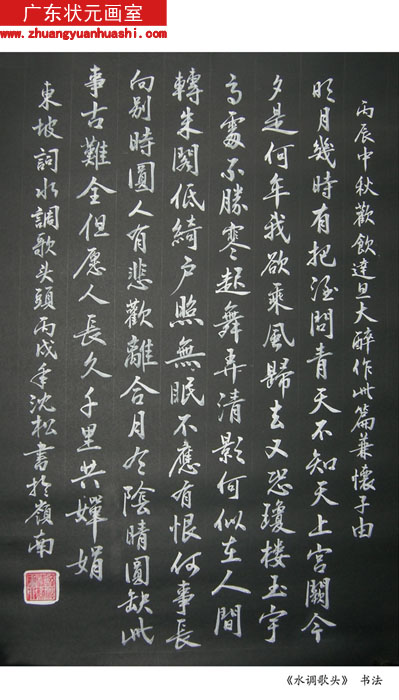 广东状元画室
www.zhuangyuanhuashi.com
丙辰中秋歡飲達旦大醉作此篇兼懷子由
明月幾時有把酒問青天不知天上宮闕今
夕是何年我欲乘風歸去又恐瓊樓玉宇
高處不勝寒起舞弄清影何似在人間
轉朱閣低綺户照無眠不應有恨何事長
向別時圓人有悲歡離合月有陰晴圓缺此
事古難全但愿人長久千里共嬋娟
東坡詞水調歌头頭丙戌年沈松書於嶺南
《水调歌头》 书法